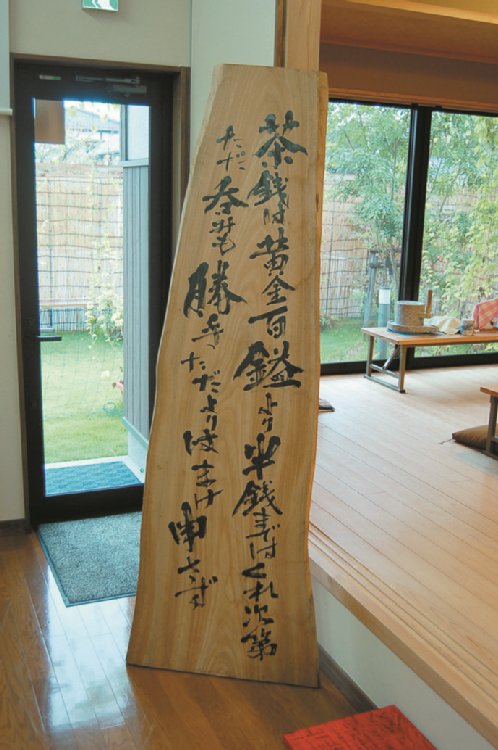 茶銭は黄金百鎰より半銭まではくれ次第
ただ呑みも勝手ただよりはまけ申さず